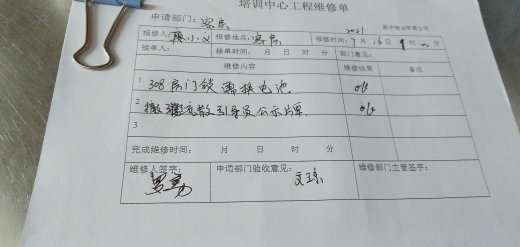 培训中心工程维修单
申请部门：客房
2021
报修人： 小 报修地点：客房 报修时间：9月16日9时 分
接单人： 接单时间： 月 日 时 分 部门意见：
维修内容 维修结果 备注
1 308房门锁需换电池 ok
2 疏散引导员公示 ok
3
完成维修时间： 月 日 时 分
维修人签字： 申请部门验收意见： 维修部门主管签字：
文琼